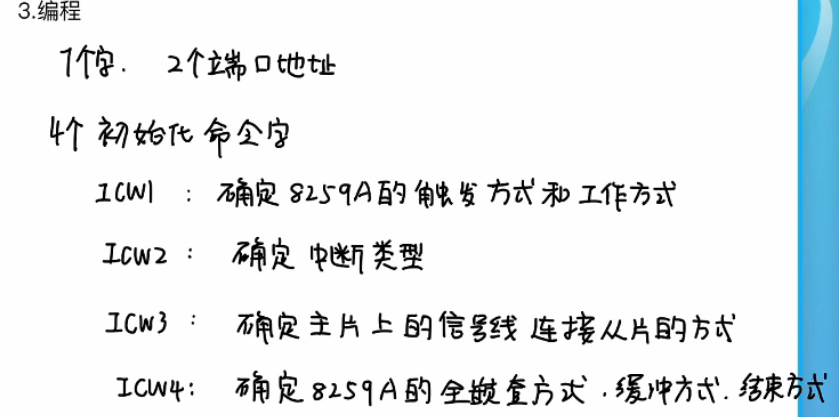 3.编程
7个字. 2个端口地址
4个初始化命令字
ICW1 : 确定8259A的触发方式和工作方式
ICW2 : 确定中断类型
ICW3 : 确定主片上的信号线连接从片的方式
ICW4: 确定8259A的全嵌套方式.缓冲方式.结束方式